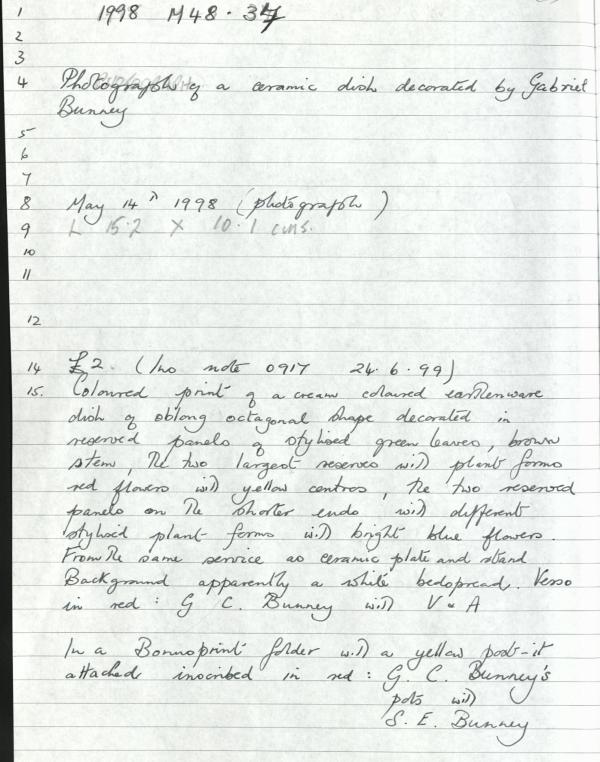 1 1998 M48.37
2
3
4 Photograph of a ceramic dish decorated by Gabriel
Bunney
5
6
7
8 May 14th 1998 (photograph)
9 L 15.2 X 10.1 cms.
10
11
12
14 £2. (Inv note 0917 24.6.99)
15. Coloured print of a cream coloured earthenware
dish of oblong octagonal shape decorated in
reserved panels of stylised green leaves, brown
stem, the two largest reserves with plant forms
red flowers with yellow centres, the two reserved
panels on the shorter ends with different
stylised plant forms with bright blue flowers.
From the same service as ceramic plate and stand
Background apparently a white bedspread. Verso
in red: G C. Bunney with V & A
In a Bonusprint folder with a yellow post-it
attached inscribed in red: G. C. Bunney's
pots with
S. E. Bunney